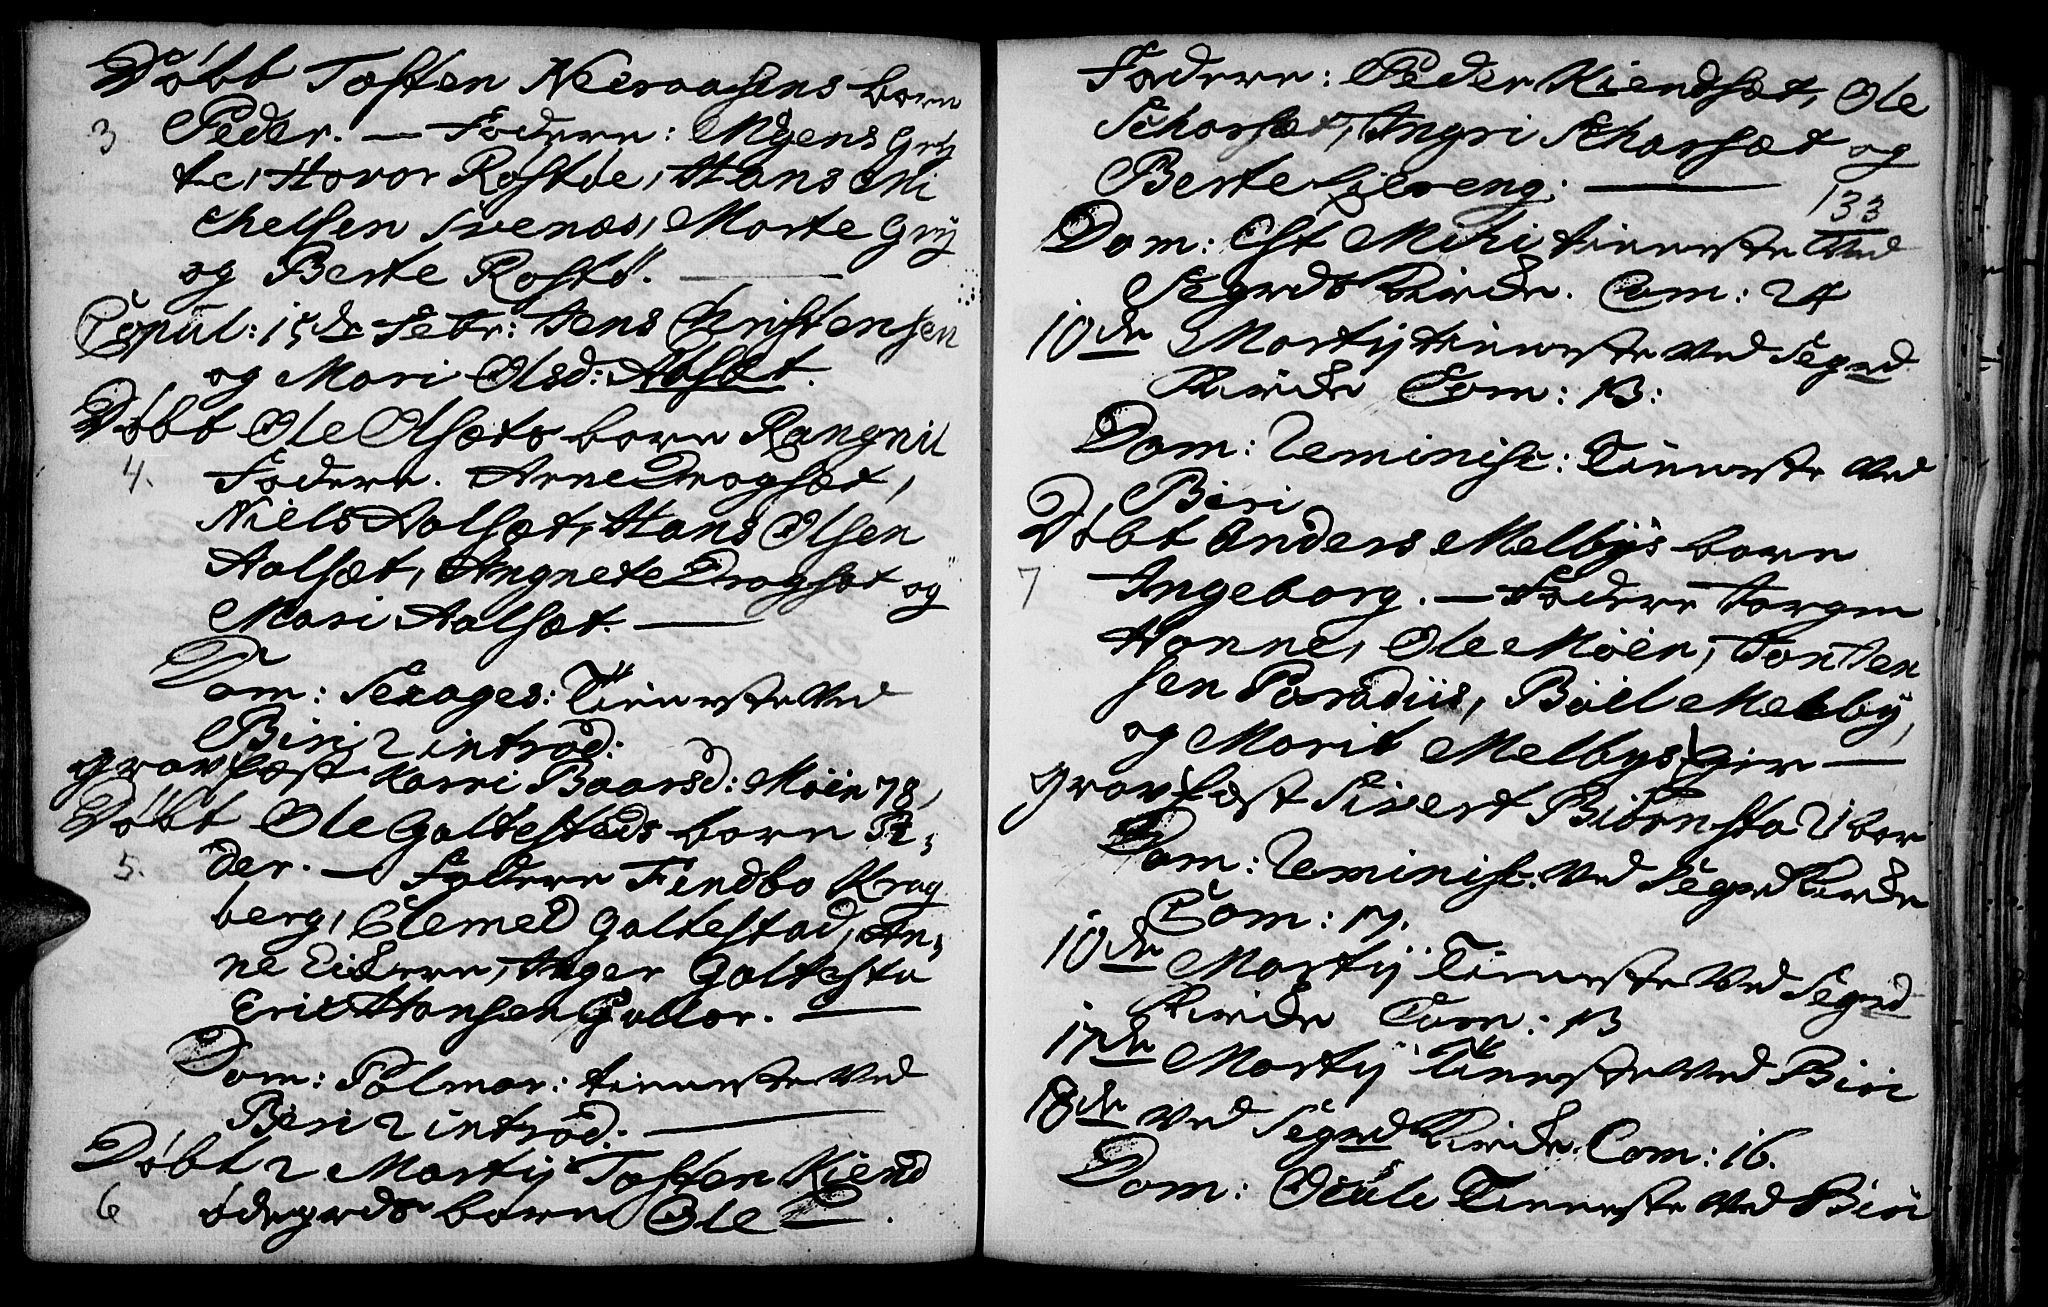 Døbt Tosten Neeraasens barn
3 Peder. — Faddere: Mogens Gry
te, Hovor Rostøe, Hans Mi
chelsen Svenæs, Marte Gry
og Berte Rostø. —
Copul: 15de Febr: Jens Christensen
og Mari Olsd: Alsæt.
Døbt Ole Olsæts barn Rangnil
4. Faddere. Arne Dragsæt,
Niels Aalsæt, Hans Olsen
Aalsæt, Angnete Dragsæt og
Mari Aalsæt. —
Dom: Sexages: Tienneste Ved
Biri, 2 introd:
Gravfæst Karri Baarsd: Möen 78,
Døbt Ole Galtestads barn Pe,
5. der. — Faddere Findbo Krag
berg, Clemed Galtestad, An,
ne Eidere, Inger Galtesta
Eric Hansen Galtor. —
Dom: Palmar: tienneste Ved
Biri 2 introd: —
Døbt 2 Martij Tosten Kiend
6 ødegrds barn Ole —.
Faddere: Peder Kiendsæt, Ole
Scharsæt, Ingri Scharsæt og
Berte Liereng. —
133
Dom: Est Mihi tienneste Ved
Segrds Kirche. Com: 24
10de Martij tienneste Ved Segrd
Kirche Com: 13:
Dom: Reminisc: Tienneste Ved
Biri
Døbt Anders Melbys barn
7 Ingeborg. — Faddere Jørgen
Honne, Ole Möen, Jon Jen
sen Paradiis, Böel Melby,
og Marit Melbys Eier —
Gravfæst Sivert Biörnsta
Dom: Reminisc: Ved Segrd Kirche
Com: 17.
10de Martij Tienneste Ved Segrd
Kirche Com: 13
17de Martij Tienneste Ved Biri
18de Ved Segrd Kirche Com: 16.
Dom: Oculi Tienneste Ved Biri